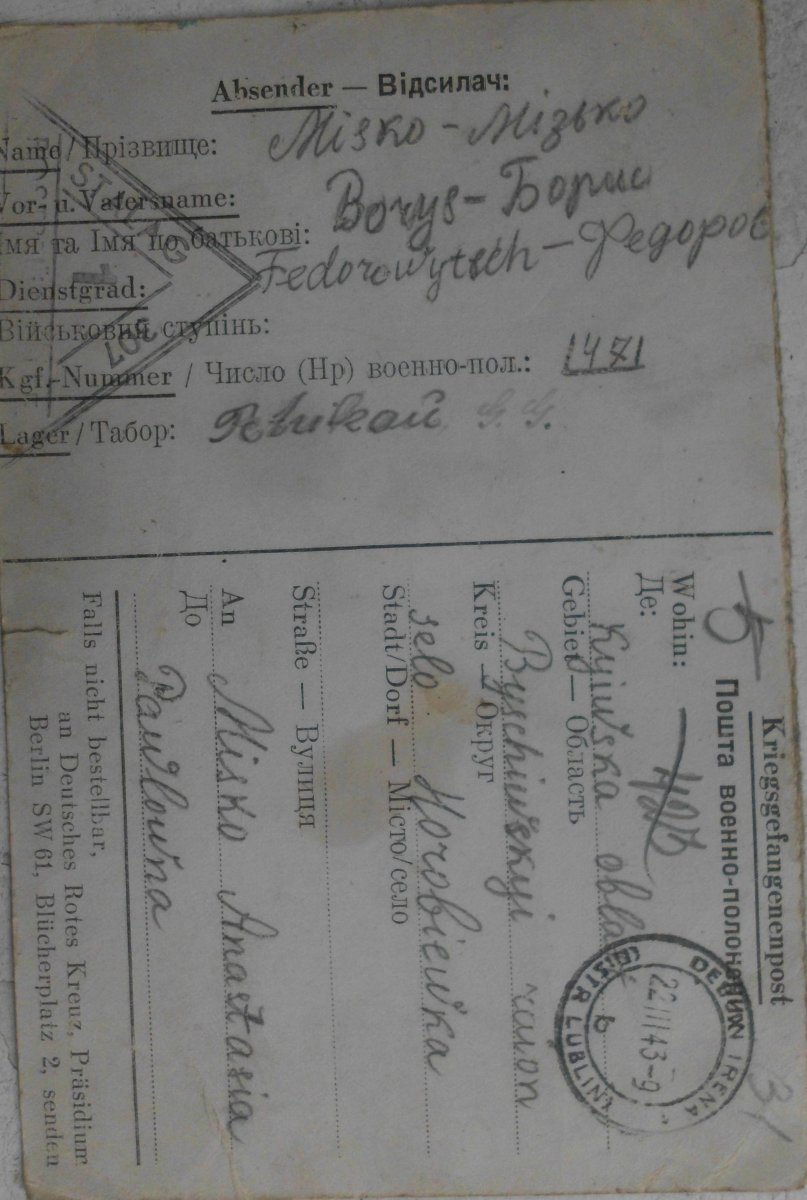 Absender — Відсилач:
Name / Прізвище: Misko - Мізько
Vor- u. Vatersname: Borys - Борис
Імя та Імя по батькові: Fedorowytsch - Федоров
Dienstgrad:
Військовий ступінь:
Kgf.-Nummer / Число (Нр) военно-пол.: 1471
Lager / Табор:
STALAG
307
Kriegsgefangenenpost
Пошта военно-полонених
Wohin:
Де:
Kyjiwska obla
Gebiet — Область
Byschiwskyj raion
Kreis — Округ
selo Horobiewka
Stadt/Dorf — Місто/село
Straße — Вулиця
An Misko Anastasia
До
Pawlowna
Falls nicht bestellbar,
an Deutsches Rotes Kreuz, Präsidium
Berlin SW 61, Blücherplatz 2, senden
DEBLIN IRENA
22 III 43-9
b
DISTR LUBLIN
31